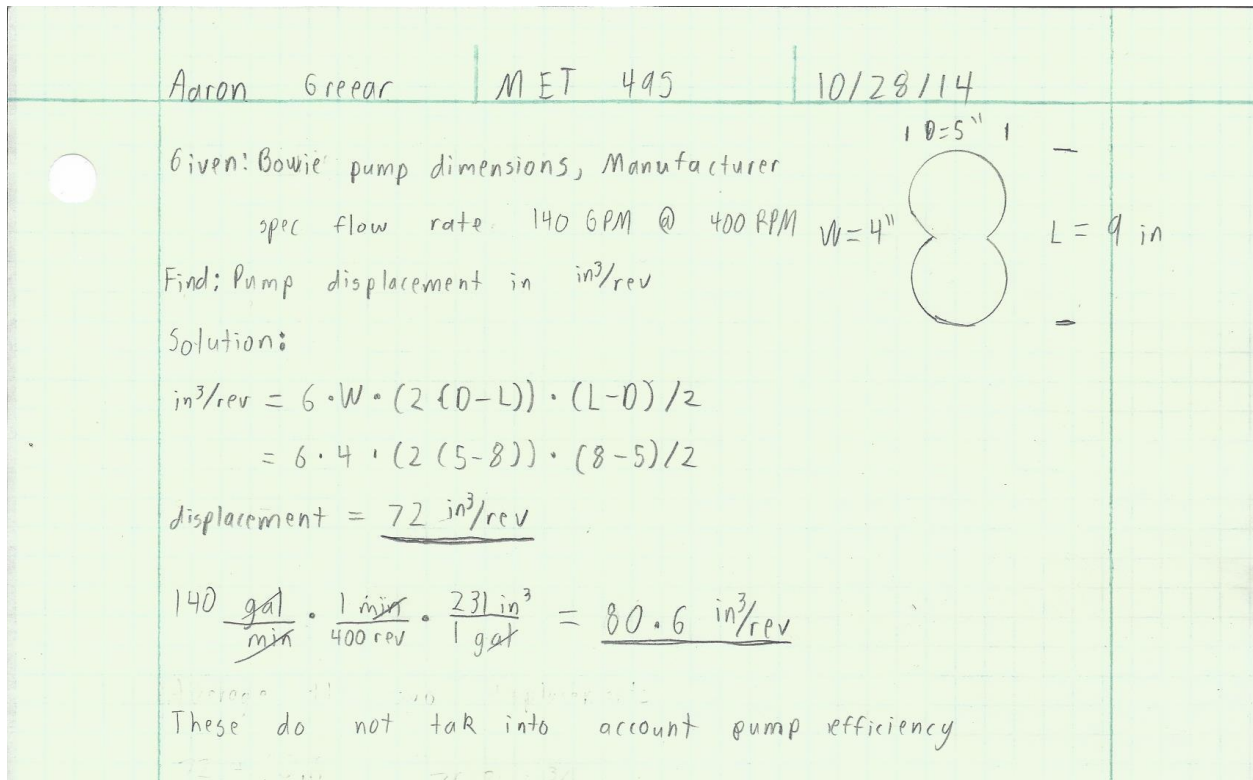 Aaron Greear MET 495 10/28/14
D=5"
Given: Bowie pump dimensions, Manufacturer
spec flow rate 140 GPM @ 400 RPM W=4" L = 9 in
Find: Pump displacement in in³/rev
Solution:
in³/rev = 6 · W · (2(D-L)) · (L-D)/2
= 6 · 4 · (2(5-8)) · (8-5)/2
displacement = 72 in³/rev
140 gal/min · 1 min/400 rev · 231 in³/1 gal = 80.6 in³/rev
These do not tak into account pump efficiency